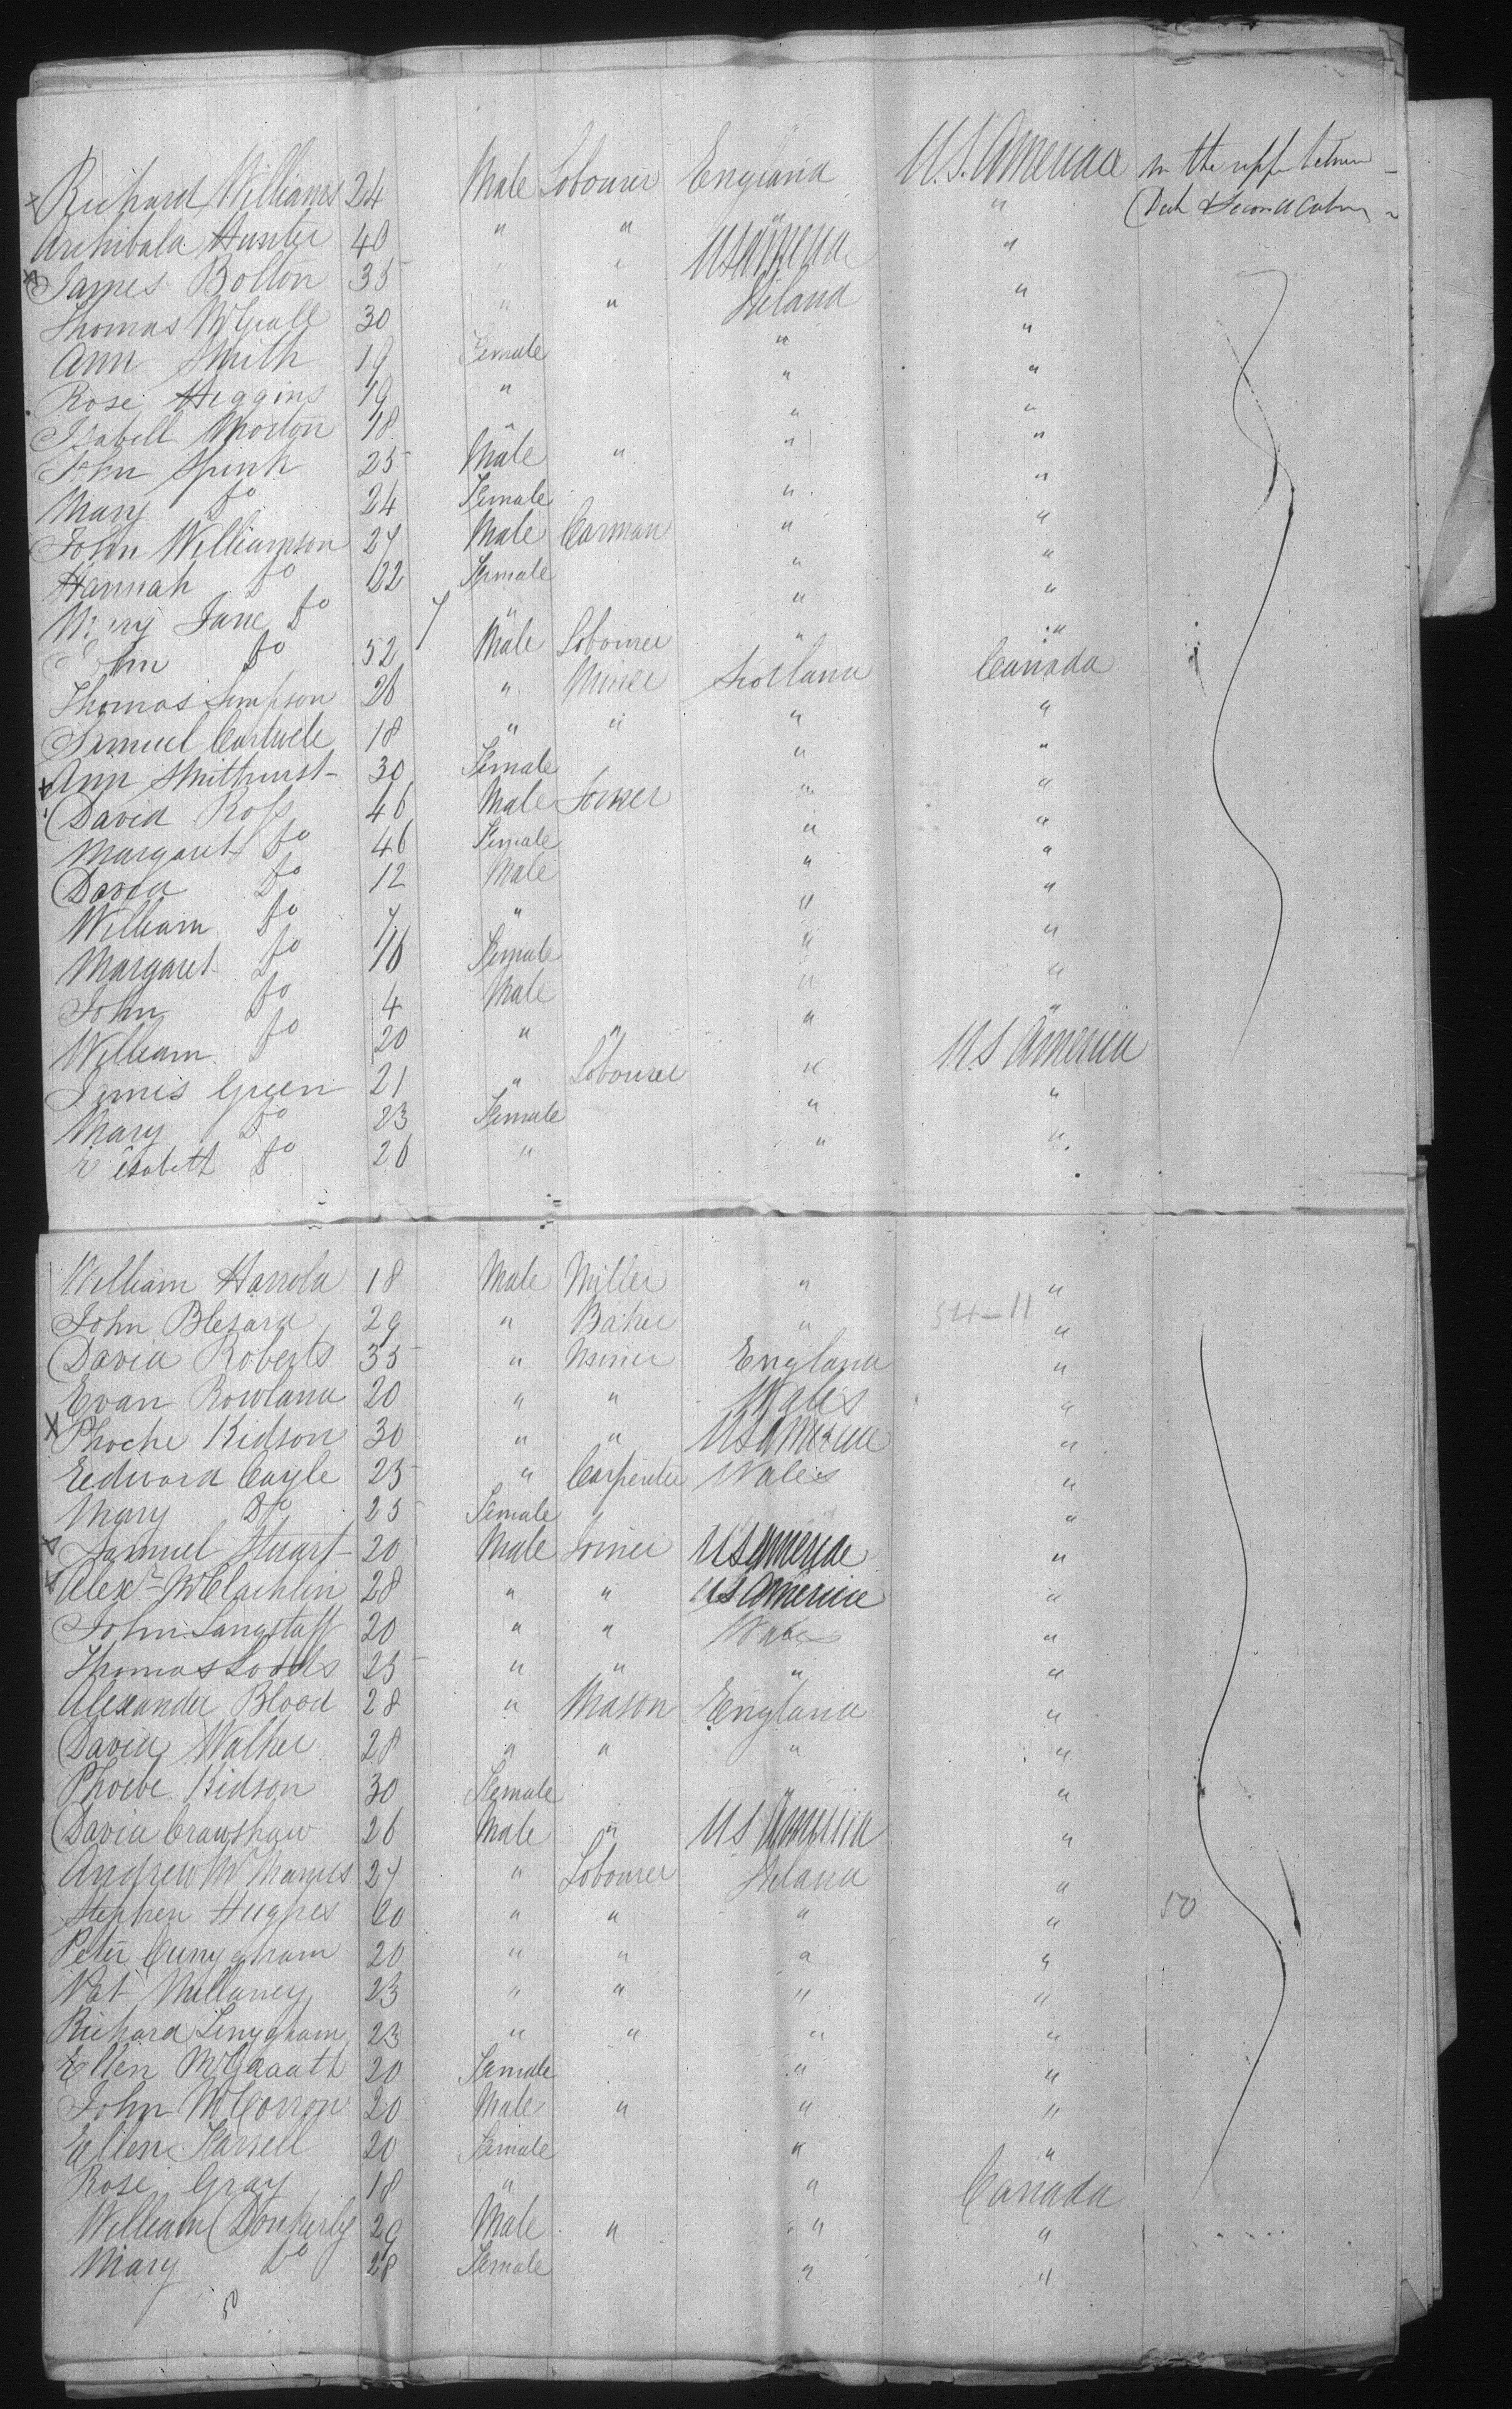 Richard Williams 24 Male Labourer England U.S. America In the upper between
Archibald Hunter 40 " " " " Deck & Second Cabin
James Bolton 35 " " U S America "
Thomas McGrall 30 " " Ireland "
Ann Smith 19 Female " "
Rose Higgins 19 " " "
Isabell Morton 18 " " "
John Spink 25 Male " " "
Mary Do 24 Female " "
John Williamson 27 Male Carman " "
Hannah Do 22 Female " "
Mary Jane Do 7 " " "
John Do 52 Male Labourer " "
Thomas Simpson 26 " Miner Scotland Canada
Samuel 18 " " " "
Ann Smithurst 30 Female " "
David Ross 46 Male Joiner " "
Margaret Do 46 Female " "
David Do 12 Male " "
William Do 7 " " "
Margaret Do 16 Female " "
John Do 4 Male " "
William Do 20 " " " "
James Green 21 " Labourer " U S America
Mary Do 23 Female " "
Elisabeth Do 26 " " "
William Harrold 18 Male Miller " "
John Blezard 29 " Baker " " 54-11
David Roberts 35 " Miner England "
Evan Rowland 20 " " Wales "
X Phoche Kidson 30 " " U S America "
Edward Cayle 25 " Carpenter Wales "
Mary Do 25 Female " "
Samuel Stuart 20 Male Joiner U S America "
Alexr McClachlin 28 " " U S America "
John Langstaff 20 " " Wales "
Thomas 25 " " " "
Alexander Blood 28 " Mason England "
David Walker 28 " " " "
Phoebe Kidson 30 Female " "
David Crawshaw 26 Male " U S America "
Andrew McManus 27 " Labourer Ireland "
Stephen Hughes 20 " " " " 50
Peter Cunygham 20 " " " "
Pat Mullaney 23 " " " "
Richard Linygham 23 " " " "
Ellen 20 Female " "
John 20 Male " " "
Ellen Farrell 20 Female " "
Rose Gray 18 " " Canada
William Donkerly 29 Male " " "
Mary Do 28 Female " "
50